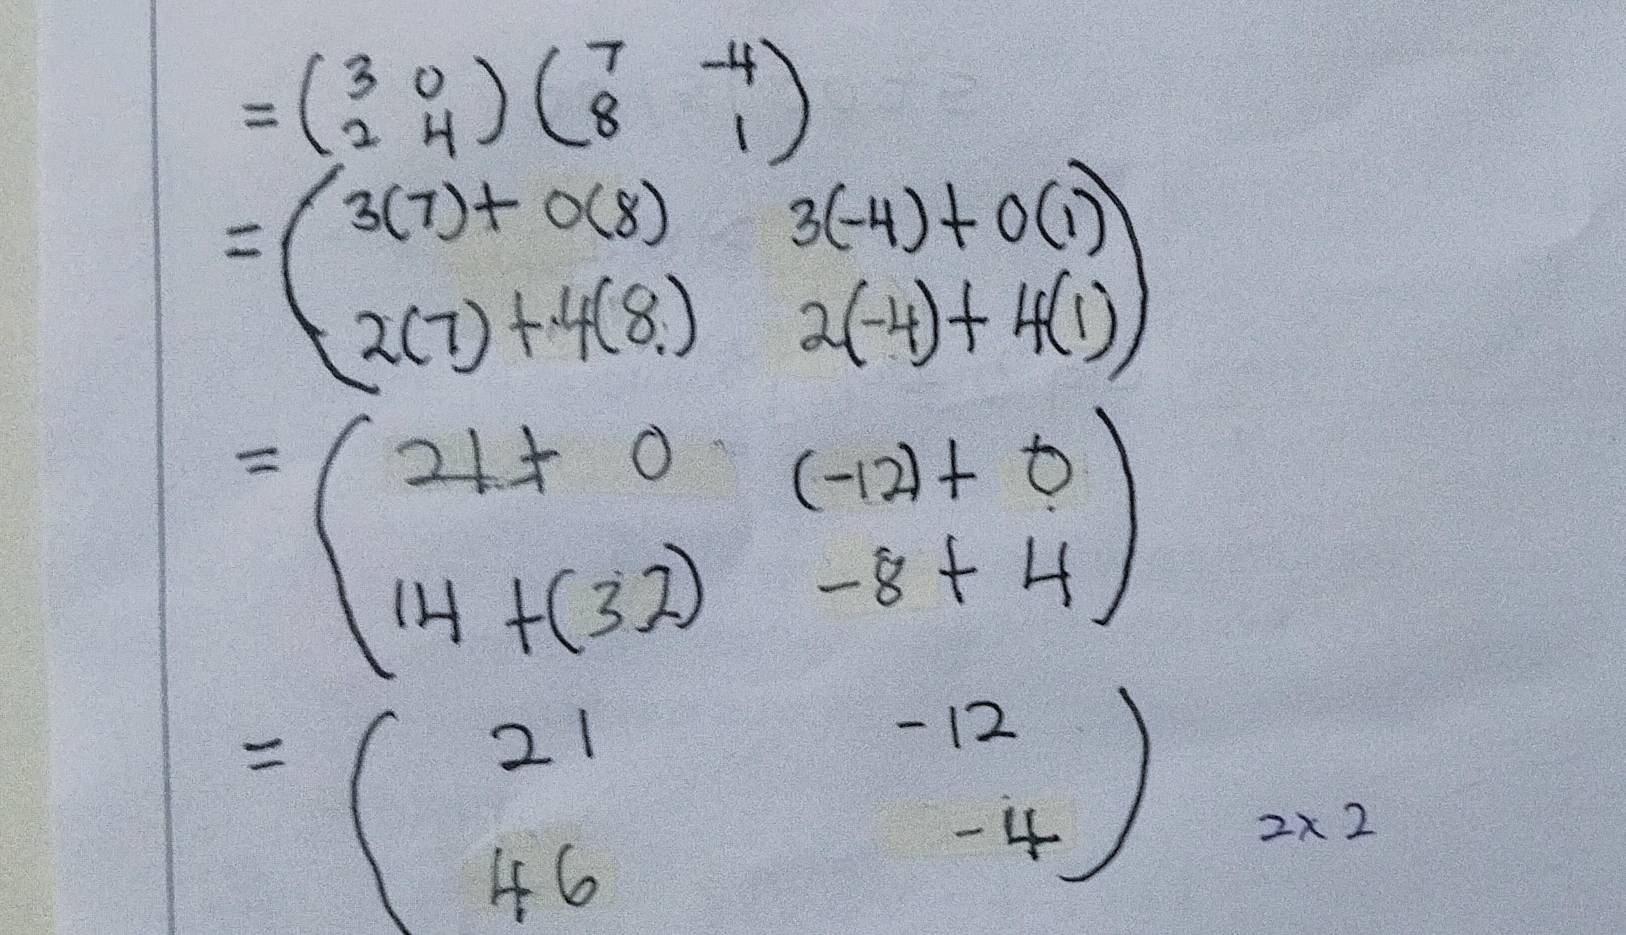 = ( 3 0 ) ( 7 -4 )
2 4 8 1
= ( 3(7) + 0(8) 3(-4) + 0(1) )
2(7) + 4(8) 2(-4) + 4(1)
= ( 21 + 0 (-12) + 0 )
14 + (32) -8 + 4
= ( 21 -12 )
46 -4 2x2